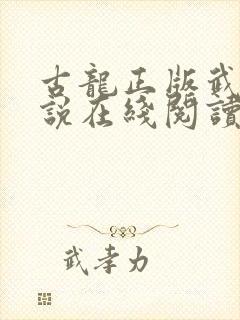 古龍正版武
說在綫閱讀
武孝力